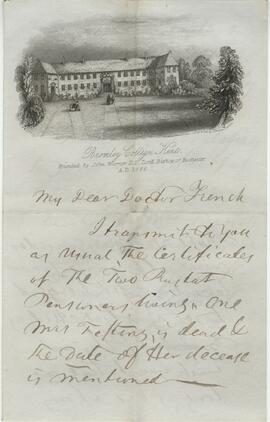 Bromley College, Kent.
Founded by John Warner D.D. Lord Bishop of Rochester
A.D. 1666
My Dear Doctor French
I transmit to you
as usual the Certificates
of The Two
Pensioners living, One
Mrs Festing, is dead &
the Date of Her decease
is mentioned